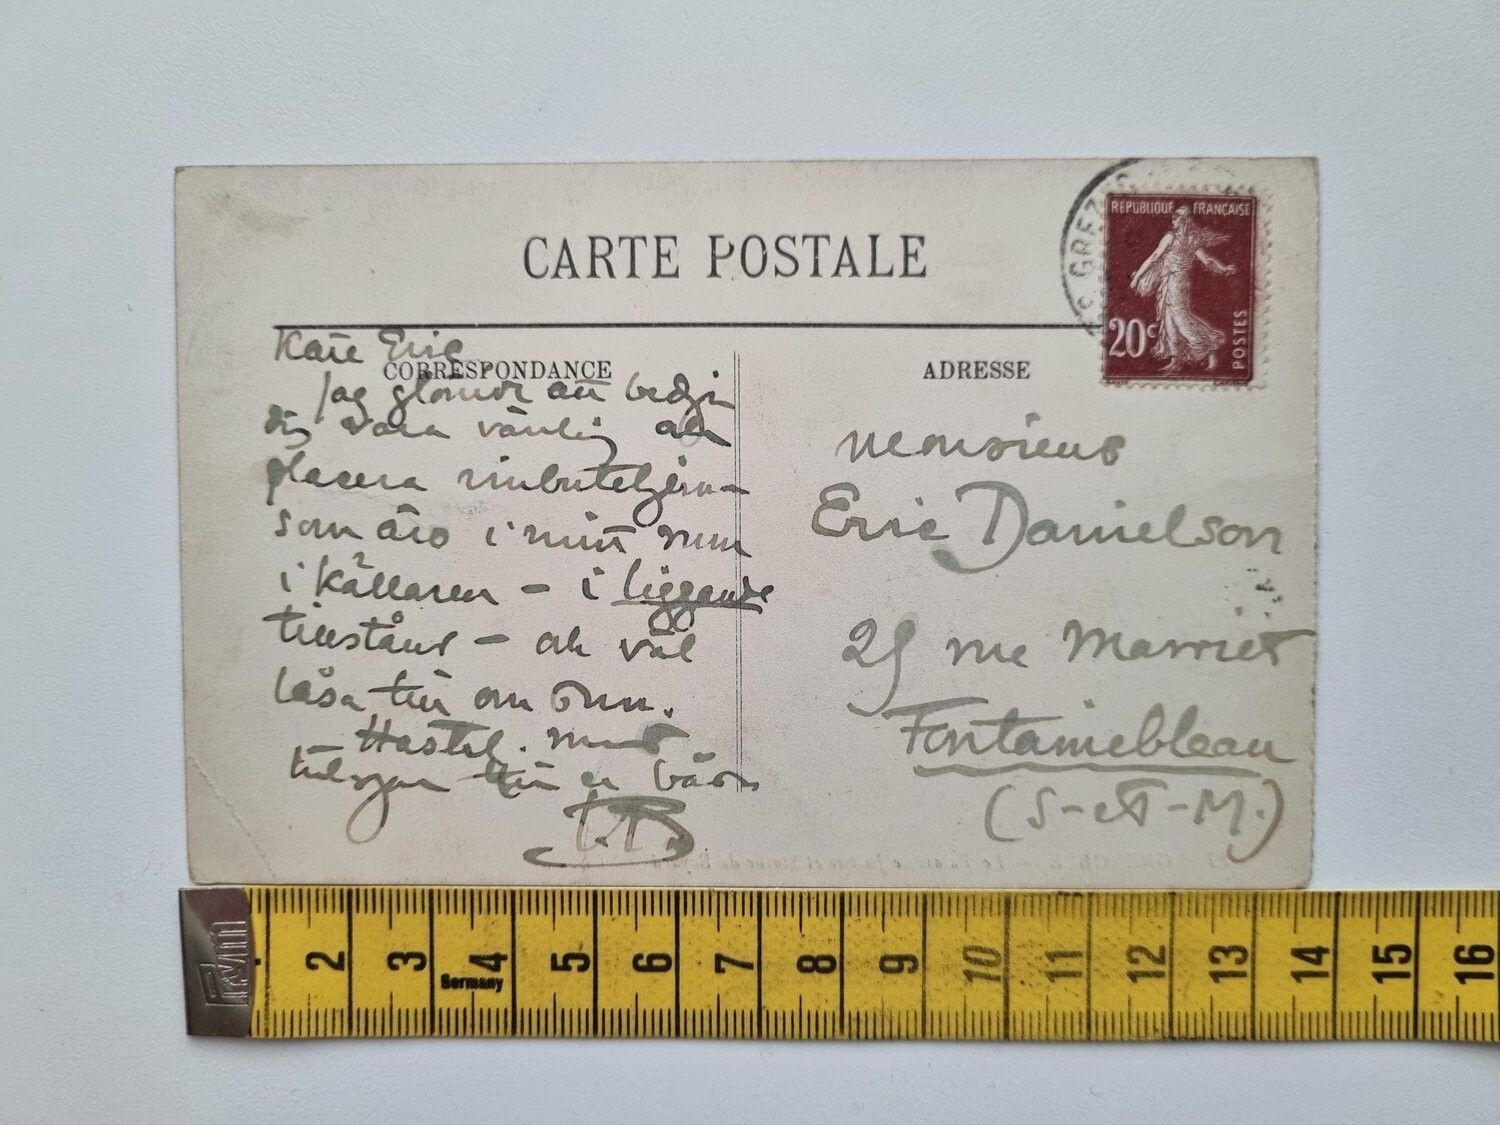 CARTE POSTALE
GREZ
REPUBLIQUE FRANÇAISE
20c
POSTES
CORRESPONDANCE
ADRESSE
Käre Eric
Jag glömde att bedja
dig vara vänlig att
placera vinbuteljerna
som äro i mitt rum
i källaren – i liggande
tillstånd – och väl
låsa till om dem.
Hastel.
tillsjan till er båda
Monsieur
Eric Danielson
25 rue Marrier
Fontainebleau
(S-et-M.)
Prym
Germany
2 3 4 5 6 7 8 9 10 11 12 13 14 15 16